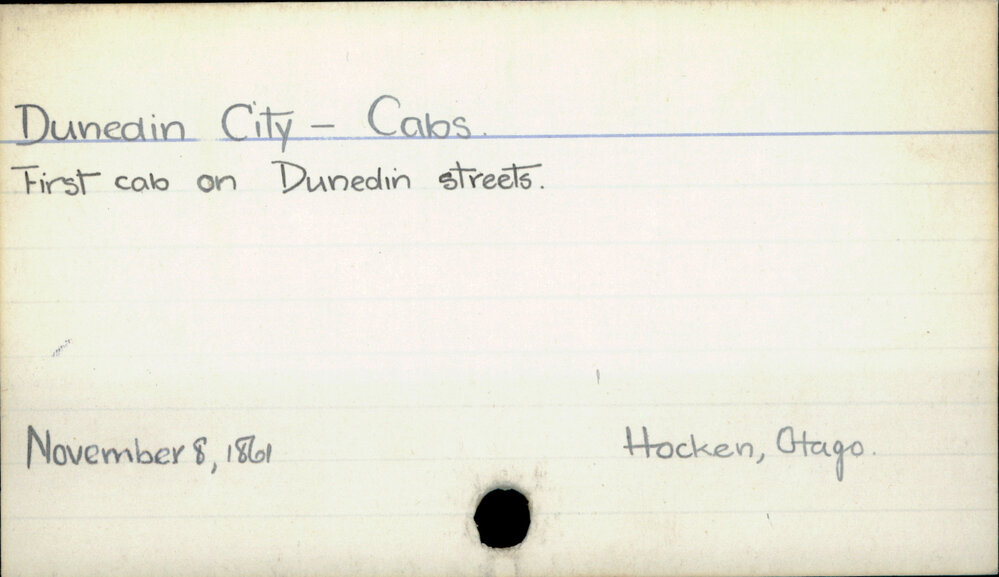 Dunedin City - Cabs.
First cab on Dunedin streets.
November 8, 1861
Hocken, Otago.